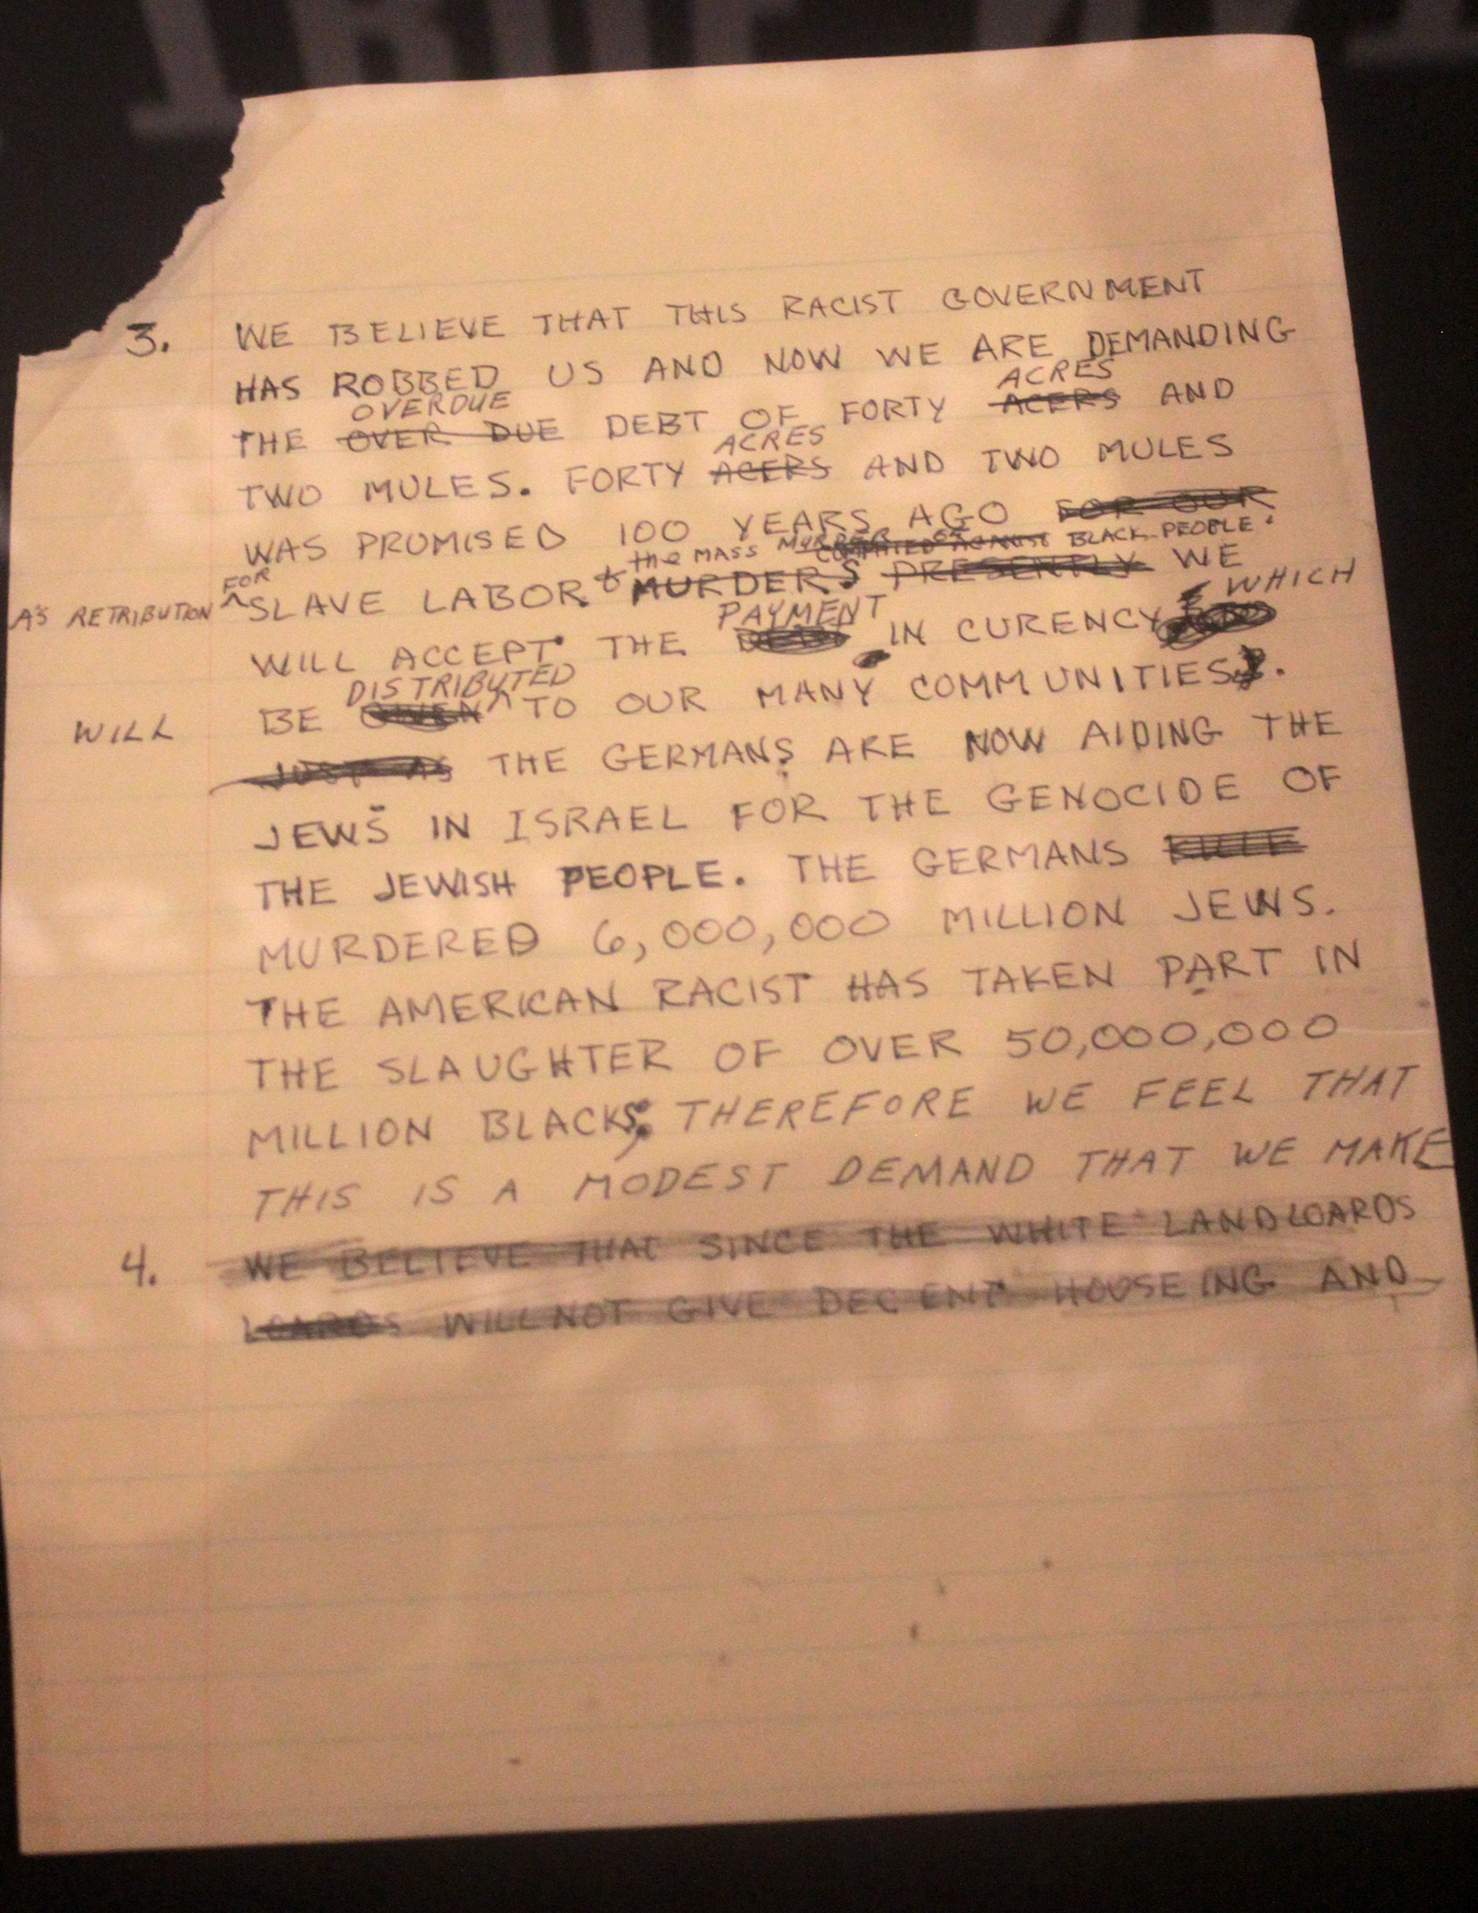 3. WE BELIEVE THAT THIS RACIST GOVERNMENT
HAS ROBBED US AND NOW WE ARE DEMANDING
OVERDUE ACRES
THE OVER DUE DEBT OF FORTY ACERS AND
ACRES
TWO MULES. FORTY ACERS AND TWO MULES
WAS PROMISED 100 YEARS AGO FOR OUR
the MASS MURDER OF BLACK PEOPLE.
AS RETRIBUTION FOR SLAVE LABOR & MURDERS PRESENTLY WE
PAYMENT WHICH
WILL ACCEPT THE IN CURENCY
DISTRIBUTED
WILL BE GIVEN TO OUR MANY COMMUNITIES.
JUST AS THE GERMANS ARE NOW AIDING THE
JEWS IN ISRAEL FOR THE GENOCIDE OF
THE JEWISH PEOPLE. THE GERMANS
MURDERED 6,000,000 MILLION JEWS.
THE AMERICAN RACIST HAS TAKEN PART IN
THE SLAUGHTER OF OVER 50,000,000
MILLION BLACKS; THEREFORE WE FEEL THAT
THIS IS A MODEST DEMAND THAT WE MAKE
4. WE BELIEVE THAT SINCE THE WHITE LANDLOARDS
LOARDS WILL NOT GIVE DECENT HOUSEING AND